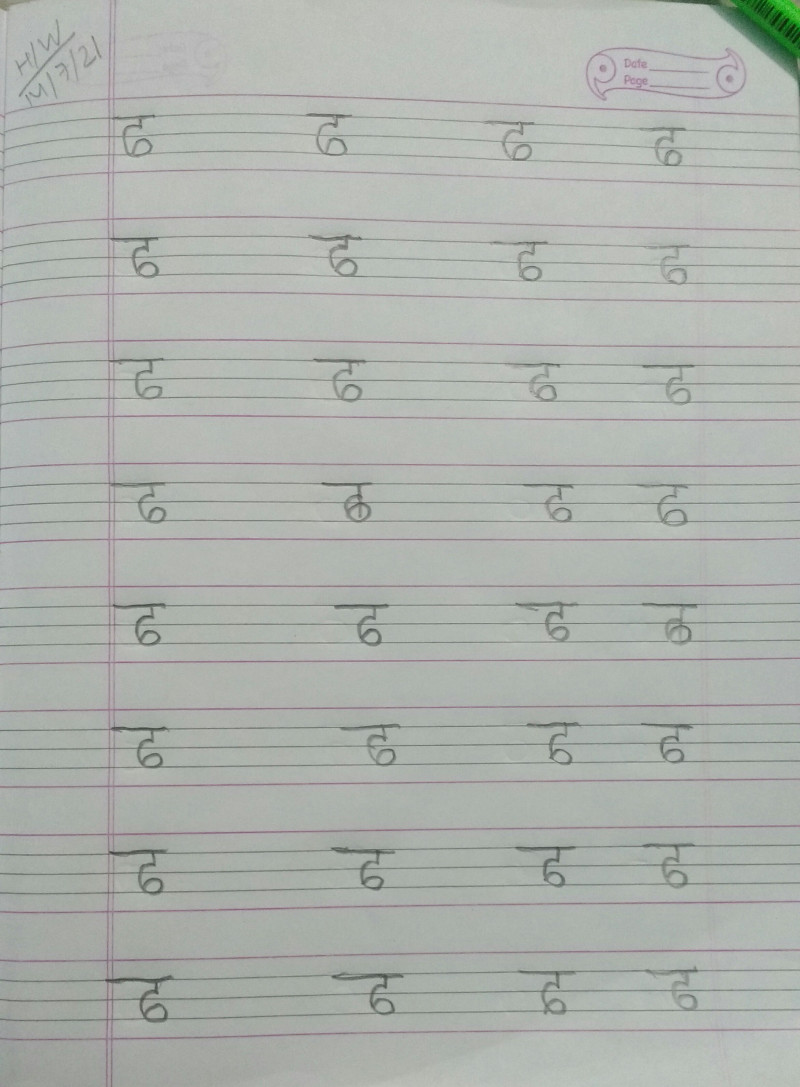 H/W
14/7/21
Date
Page
ढ ढ ढ ढ
ढ ढ ढ ढ
ढ ढ ढ ढ
ढ ढ ढ ढ
ढ ढ ढ ढ
ढ ढ ढ ढ
ढ ढ ढ ढ
ढ ढ ढ ढ